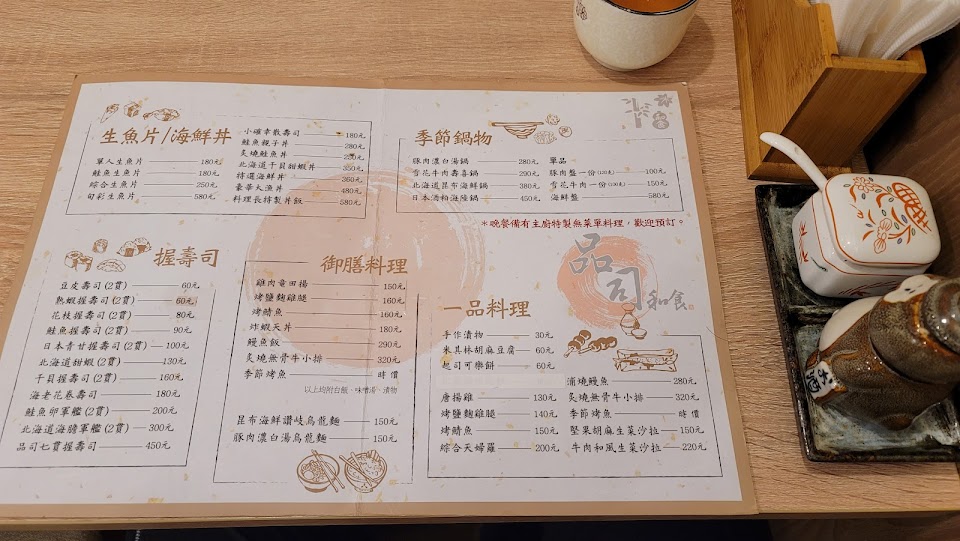 生魚片/海鮮丼
單人生魚片 180元
鮭魚生魚片 180元
綜合生魚片 250元
旬彩生魚片 580元
小確幸散壽司 180元
鮭魚親子丼 280元
炙燒鮭魚丼 260元
北海道干貝甜蝦丼 350元
特選海鮮丼 360元
豪華大漁丼 480元
料理長特製丼飯 580元
季節鍋物
豚肉濃白湯鍋 280元
雪花牛肉壽喜鍋 290元
北海道昆布海鮮鍋 380元
日本酒粕海陸鍋 450元
單品
豚肉盤一份 100元
雪花牛肉一份 150元
海鮮盤 580元
*晚餐備有主廚特製無菜單料理,歡迎預訂。
品司和食
握壽司
豆皮壽司(2貫) 60元
熟蝦握壽司(2貫) 60元
花枝握壽司(2貫) 80元
鮭魚握壽司(2貫) 90元
日本青甘握壽司(2貫) 100元
北海道甜蝦(2貫) 130元
干貝握壽司(2貫) 160元
海老花卷壽司 180元
鮭魚卵軍艦(2貫) 200元
北海道海膽軍艦(2貫) 300元
品司七貫握壽司 450元
御膳料理
雞肉竜田揚 150元
烤鹽麴雞腿 160元
烤鯖魚 160元
炸蝦天丼 180元
鰻魚飯 290元
炙燒無骨牛小排 320元
季節烤魚 時價
以上均附白飯、味噌湯、漬物
昆布海鮮讚岐烏龍麵 150元
豚肉濃白湯烏龍麵 150元
一品料理
手作漬物 30元
米其林胡麻豆腐 60元
起司可樂餅 60元
唐揚雞 130元
烤鹽麴雞腿 140元
烤鯖魚 150元
綜合天婦羅 200元
蒲燒鰻魚 280元
炙燒無骨牛小排 320元
季節烤魚 時價
堅果胡麻生菜沙拉 150元
牛肉和風生菜沙拉 220元